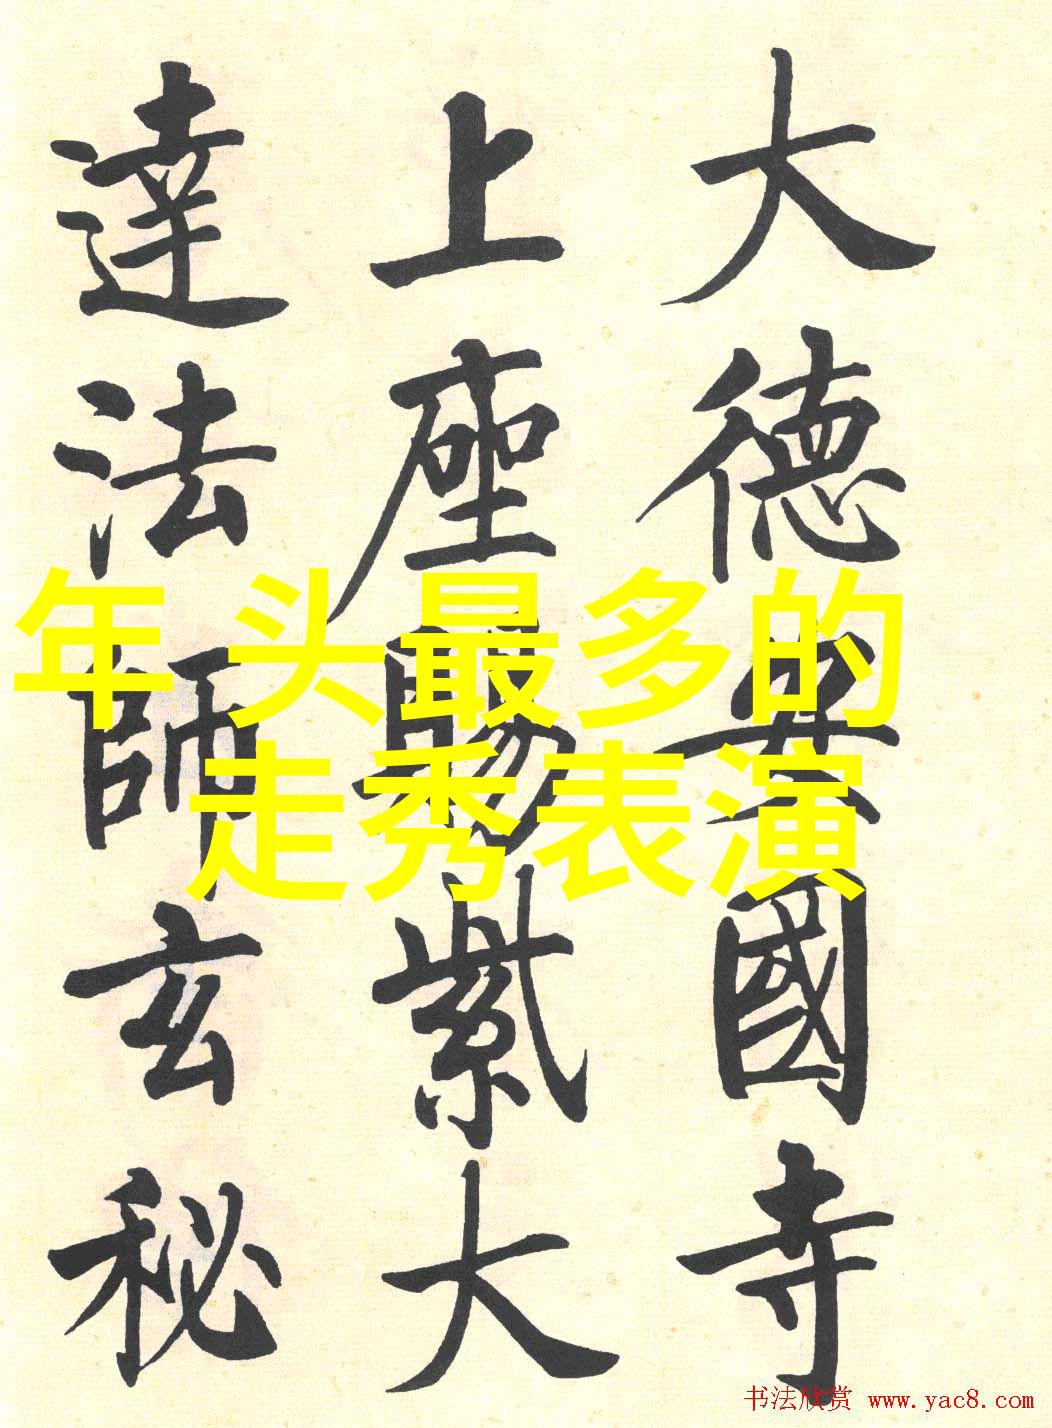 大德安國寺
上座賜紫大
達法師玄秘
年 头最多的
走秀表演
书法欣赏 www.yac8.com